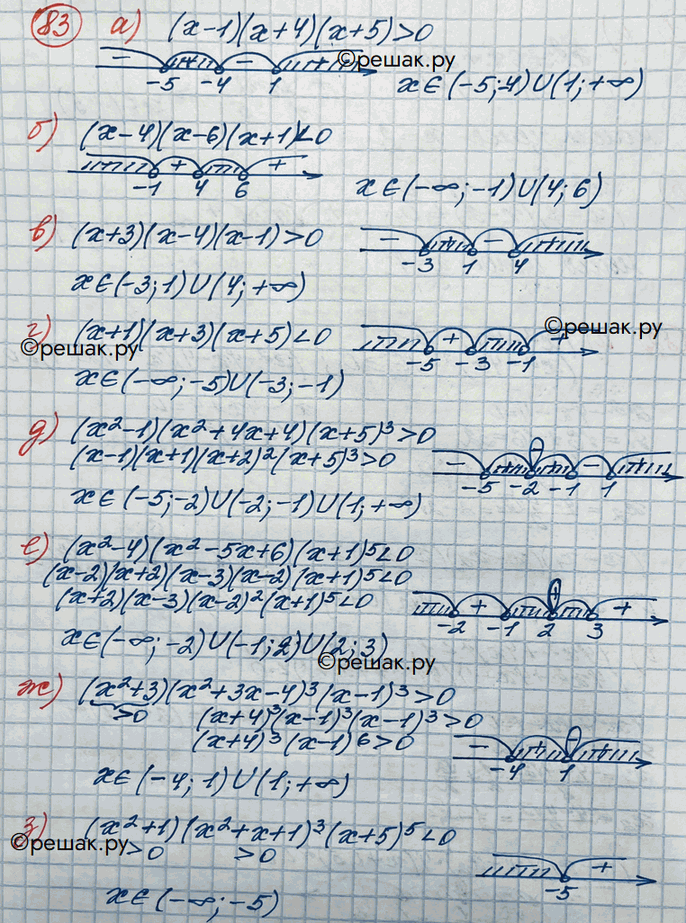 83 а) (x-1)(x+4)(x+5)>0
©решак.ру
- + - +
-5 -4 1
x∈(-5;-4)∪(1;+∞)
б) (x-4)(x-6)(x+1)<0
+ +
-1 4 6
x∈(-∞;-1)∪(4;6)
в) (x+3)(x-4)(x-1)>0
- + - +
-3 1 4
x∈(-3;1)∪(4;+∞)
г) (x+1)(x+3)(x+5)<0
©решак.ру
©решак.ру
+ +
-5 -3 -1
x∈(-∞;-5)∪(-3;-1)
д) (x²-1)(x²+4x+4)(x+5)³>0
(x-1)(x+1)(x+2)²(x+5)³>0
- + + - +
-5 -2 -1 1
x∈(-5;-2)∪(-2;-1)∪(1;+∞)
е) (x²-4)(x²-5x+6)(x+1)⁵<0
(x-2)(x+2)(x-3)(x-2)(x+1)⁵<0
(x+2)(x-3)(x-2)²(x+1)⁵<0
+ + +
-2 -1 2 3
x∈(-∞;-2)∪(-1;2)∪(2;3)
©решак.ру
ж) (x²+3)(x²+3x-4)³(x-1)³>0
>0 (x+4)³(x-1)³(x-1)³>0
(x+4)³(x-1)⁶>0
- + - +
-4 1
x∈(-4;1)∪(1;+∞)
з) (x²+1)(x²+x+1)³(x+5)⁵<0
©решак.ру
>0 >0
+
-5
x∈(-∞;-5)